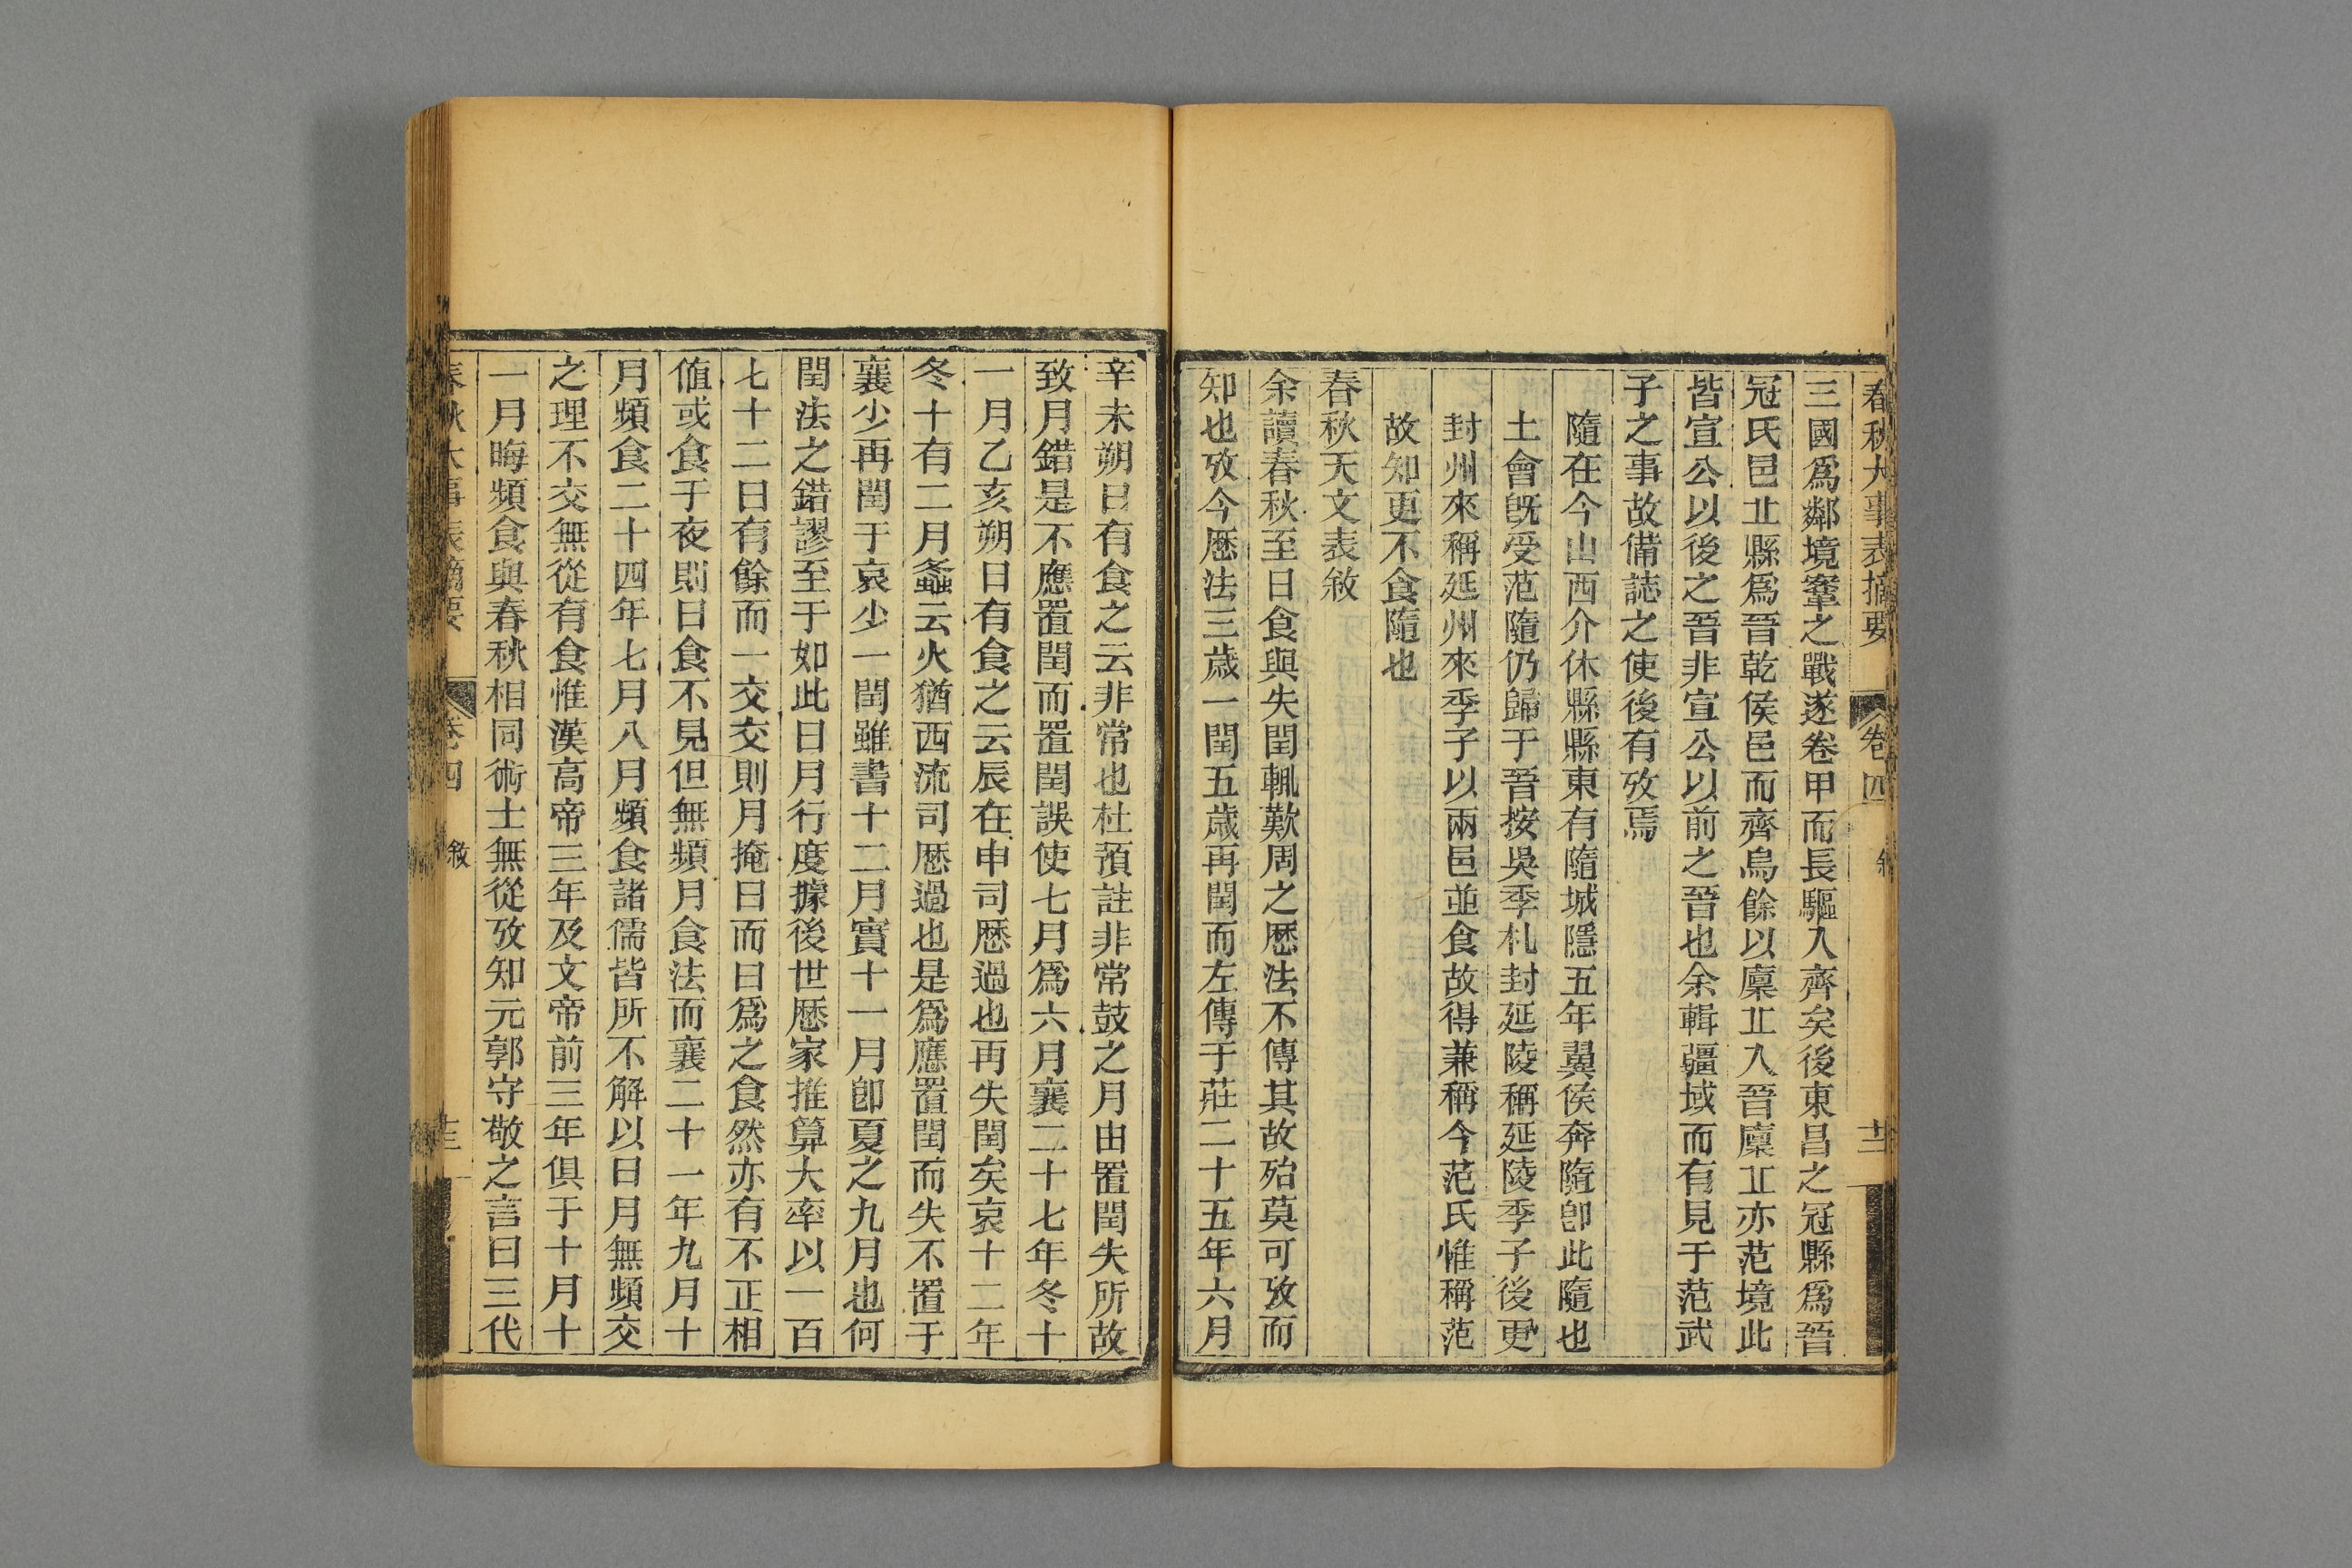 春秋大事表摘要 卷四 敘 十二
三國爲鄰境鞌之戰遂卷甲而長驅入齊矣後東昌之冠縣爲晉
冠氏邑丘縣爲晉乾侯邑而齊烏餘以廩丘入晉廩丘亦范境此
皆宣公以後之晉非宣公以前之晉也余輯疆域而有見于范武
子之事故備誌之使後有攷焉
隨在今山西介休縣縣東有隨城隱五年翼侯奔隨卽此隨也
士會旣受范隨仍歸于晉按吳季札封延陵稱延陵季子後更
封州來稱延州來季子以兩邑並食故得兼稱今范氏惟稱范
故知更不食隨也
春秋天文表敘
余讀春秋至日食與失閏輒歎周之歷法不傳其故殆莫可攷而
知也攷今歷法三歲一閏五歲再閏而左傳于莊二十五年六月
辛未朔日有食之云非常也杜預註非常鼓之月由置閏失所故
致月錯是不應置閏而置閏誤使七月爲六月襄二十七年冬十
一月乙亥朔日有食之云辰在申司歷過也再失閏矣哀十二年
冬十有二月螽云火猶西流司歷過也是爲應置閏而失不置于
襄少再閏于哀少一閏雖書十二月實十一月卽夏之九月也何
閏法之錯謬至于如此日月行度據後世歷家推算大率以一百
七十二日有餘而一交交則月掩日而日爲之食然亦有不正相
値或食于夜則日食不見但無頻月食法而襄二十一年九月十
月頻食二十四年七月八月頻食諸儒皆所不解以日月無頻交
之理不交無從有食惟漢高帝三年及文帝前三年俱于十月十
一月晦頻食與春秋相同術士無從攷知元郭守敬之言曰三代
春秋大事表摘要 卷四 敘 十三